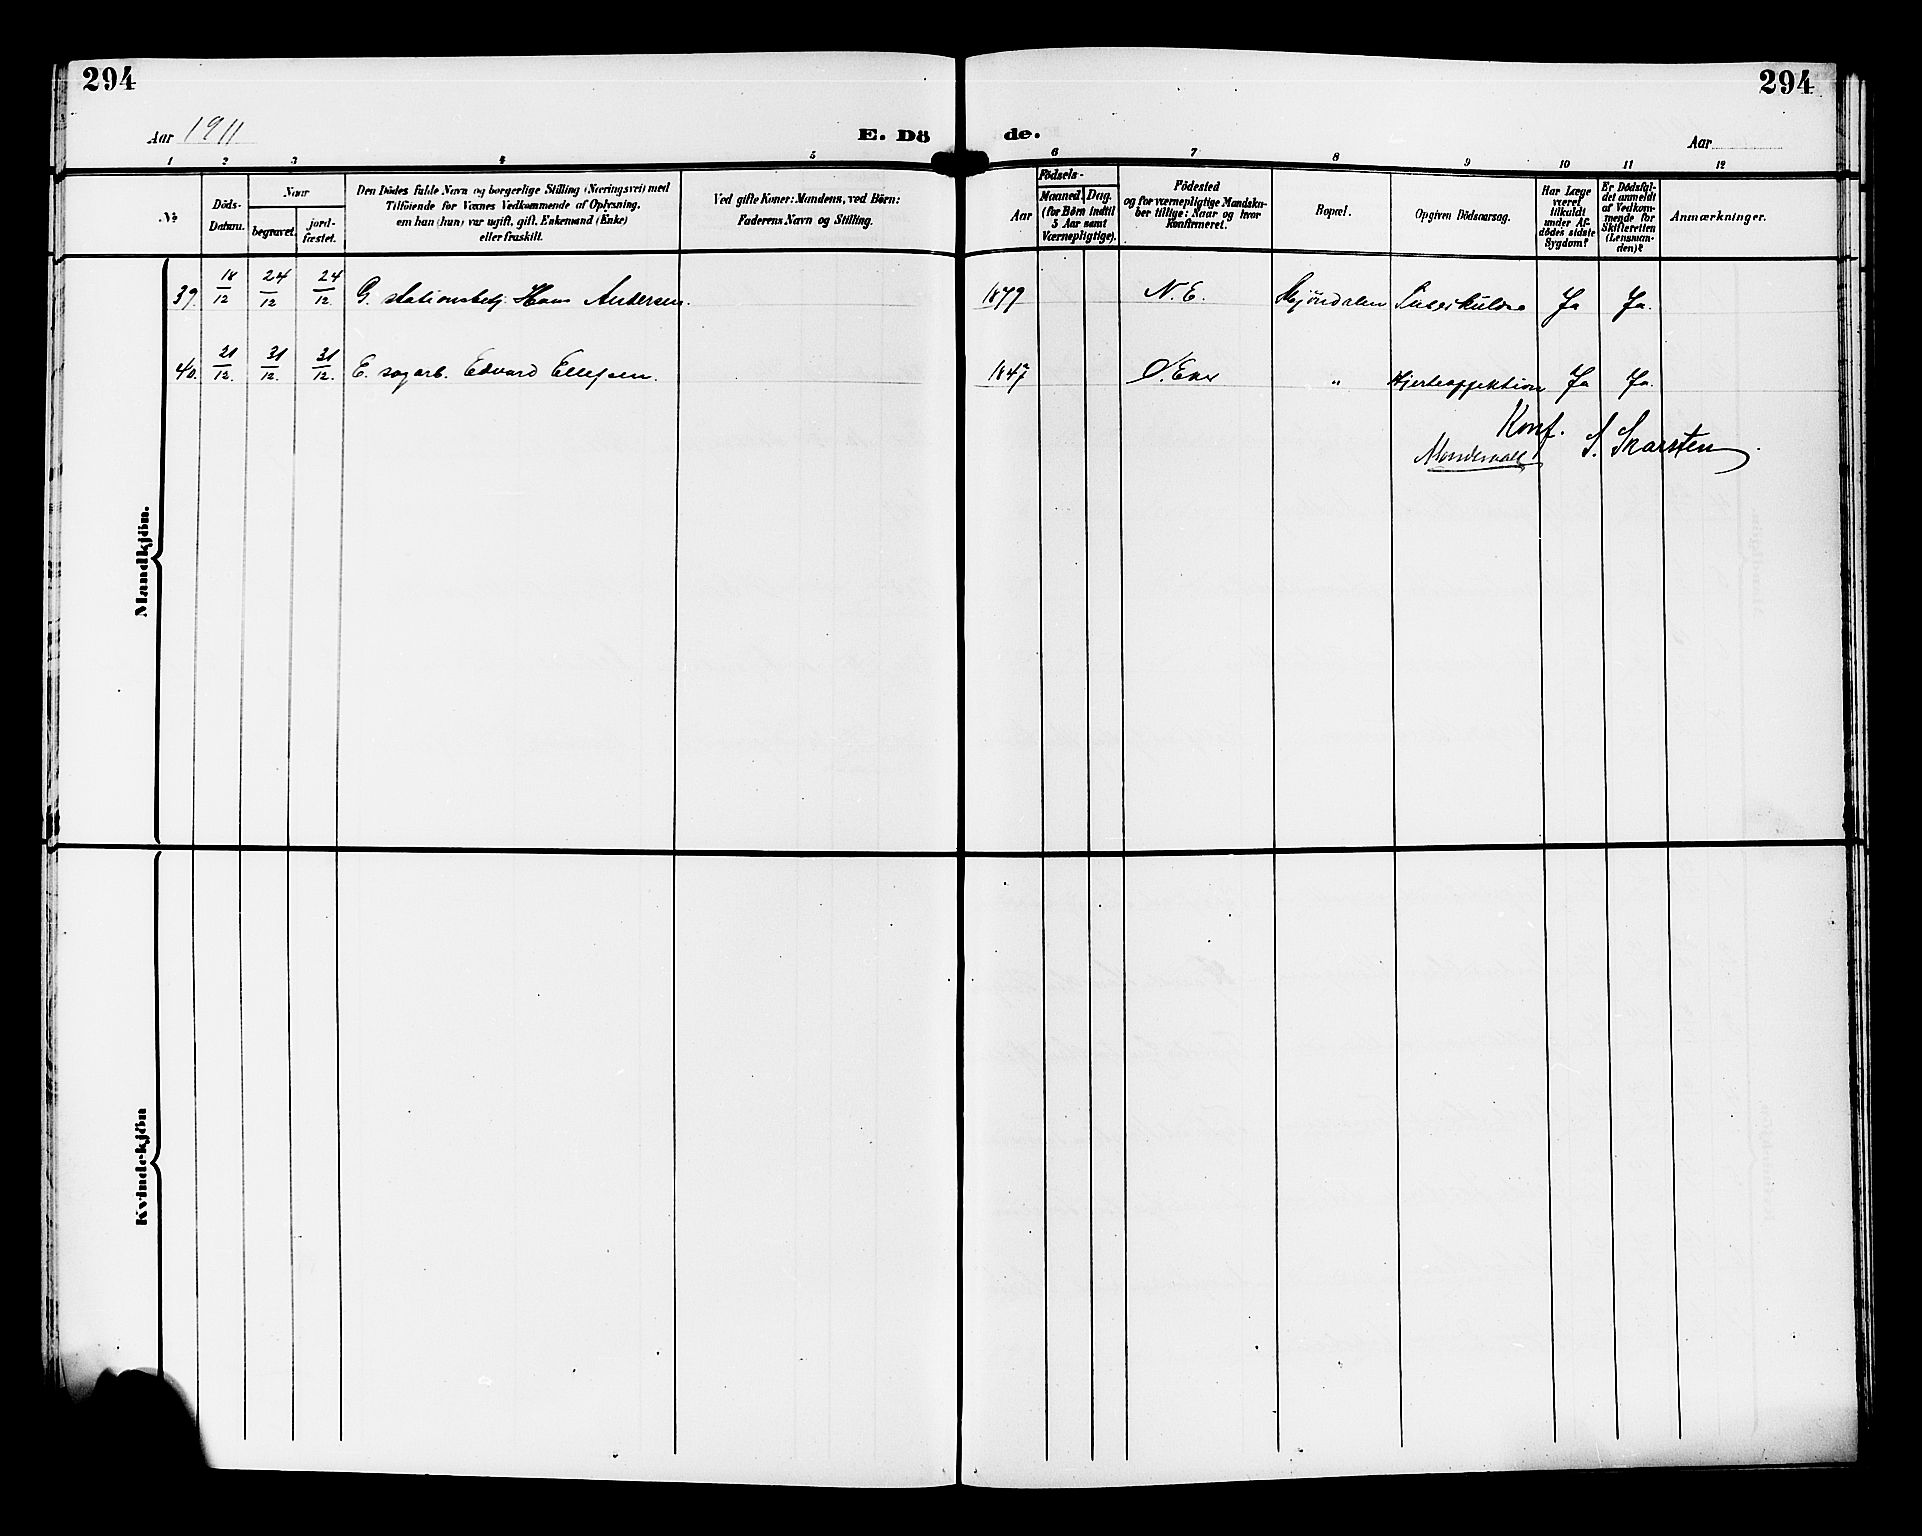 294
294
Aar 1911
E. Dö
de.
Aar
1 2 3 4 5 6 7 8 9 10 11 12
No.
Döds-
Datum.
Naar
begravet.
jord-
fæstet.
Den Dödes fulde Navn og borgerlige Stilling (Næringsvei) med
Tilföiende for Voxnes Vedkommende af Oplysning,
om han (hun) var ugift, gift, Enkemand (Enke)
eller fraskilt.
Ved gifte Koner: Mandens, ved Börn:
Faderens Navn og Stilling.
Födsels-
Aar
Maaned.
Dag.
(for Börn indtil
5 Aar samt
Værnepligtige).
Födested
og for værnepligtige Mandska-
ber tillige: Naar og hvor
Konfirmeret.
Bopæl.
Opgiven Dödsaarsag.
Har Læge
været
tilkaldt
under Af-
dödes sidste
Sygdom?
Er Dödsfal-
det anmeldt
af Vedkom-
mende for
Skifteretten
(Lensman-
den)?
Anmærkninger.
Mandkjön.
39. 18/12 24/12 24/12. G. stationsbetj. Hans Andersen. 1879 N. E. Mjøndalen Tuberkulose Ja Ja.
40. 21/12. 31/12. 31/12. E. sagarb. Edvard Ellefsen. 1847 N. Eker " Hjerteaffektion Ja Ja.
Konf.
S. Skarsten
Kvindekjön